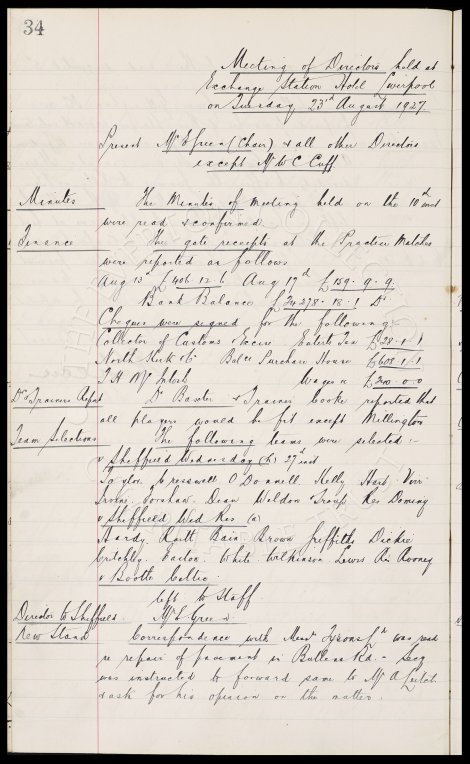 34
Meeting of Directors held at
Exchange Station Hotel Liverpool
on Tuesday 23rd August 1927
Present Mr E Green (Chair) & all other Directors
except Mr W C Cuff
Minutes The Minutes of meeting held on the 10th inst
were read & confirmed
Finance The gate receipts at the Practice Matches
were reported as follows
Aug 13th £406-12-6 Aug 17th £159-9-9
Bank Balance £34278-18-1 Dr
Cheques were signed for the following:
Collector of Customs & Excise Enterts Tax £28-1-1
North Kirk & Co Balce Purchase House £608-1-1
T H McIntosh Wages a/c £300-0-0
Dr & Trainers Report Dr Baxter & Trainer Cooke reported that
all players would be fit except Millington
Team Selections The following teams were selected:-
v Sheffield Wednesday (h) 27th inst
Taylor Cresswell O'Donnell Kelly Hart Virr
Irvine Forshaw Dean Weldon Troup Res Dominy
v Sheffield Wed Res (a)
Hardy Raitt Bain Brown Griffiths Dickie
Critchley Easton White Wilkinson Lewis Res Rooney
v Bootle Celtic
left to Staff
Director to Sheffield Mr E Green
New Stand Correspondence with Messrs Tysons Ltd was read
re repair of pavement in Bullens Rd - Secy
was instructed to forward same to Mr A Leitch
& ask for his opinion on the matter.